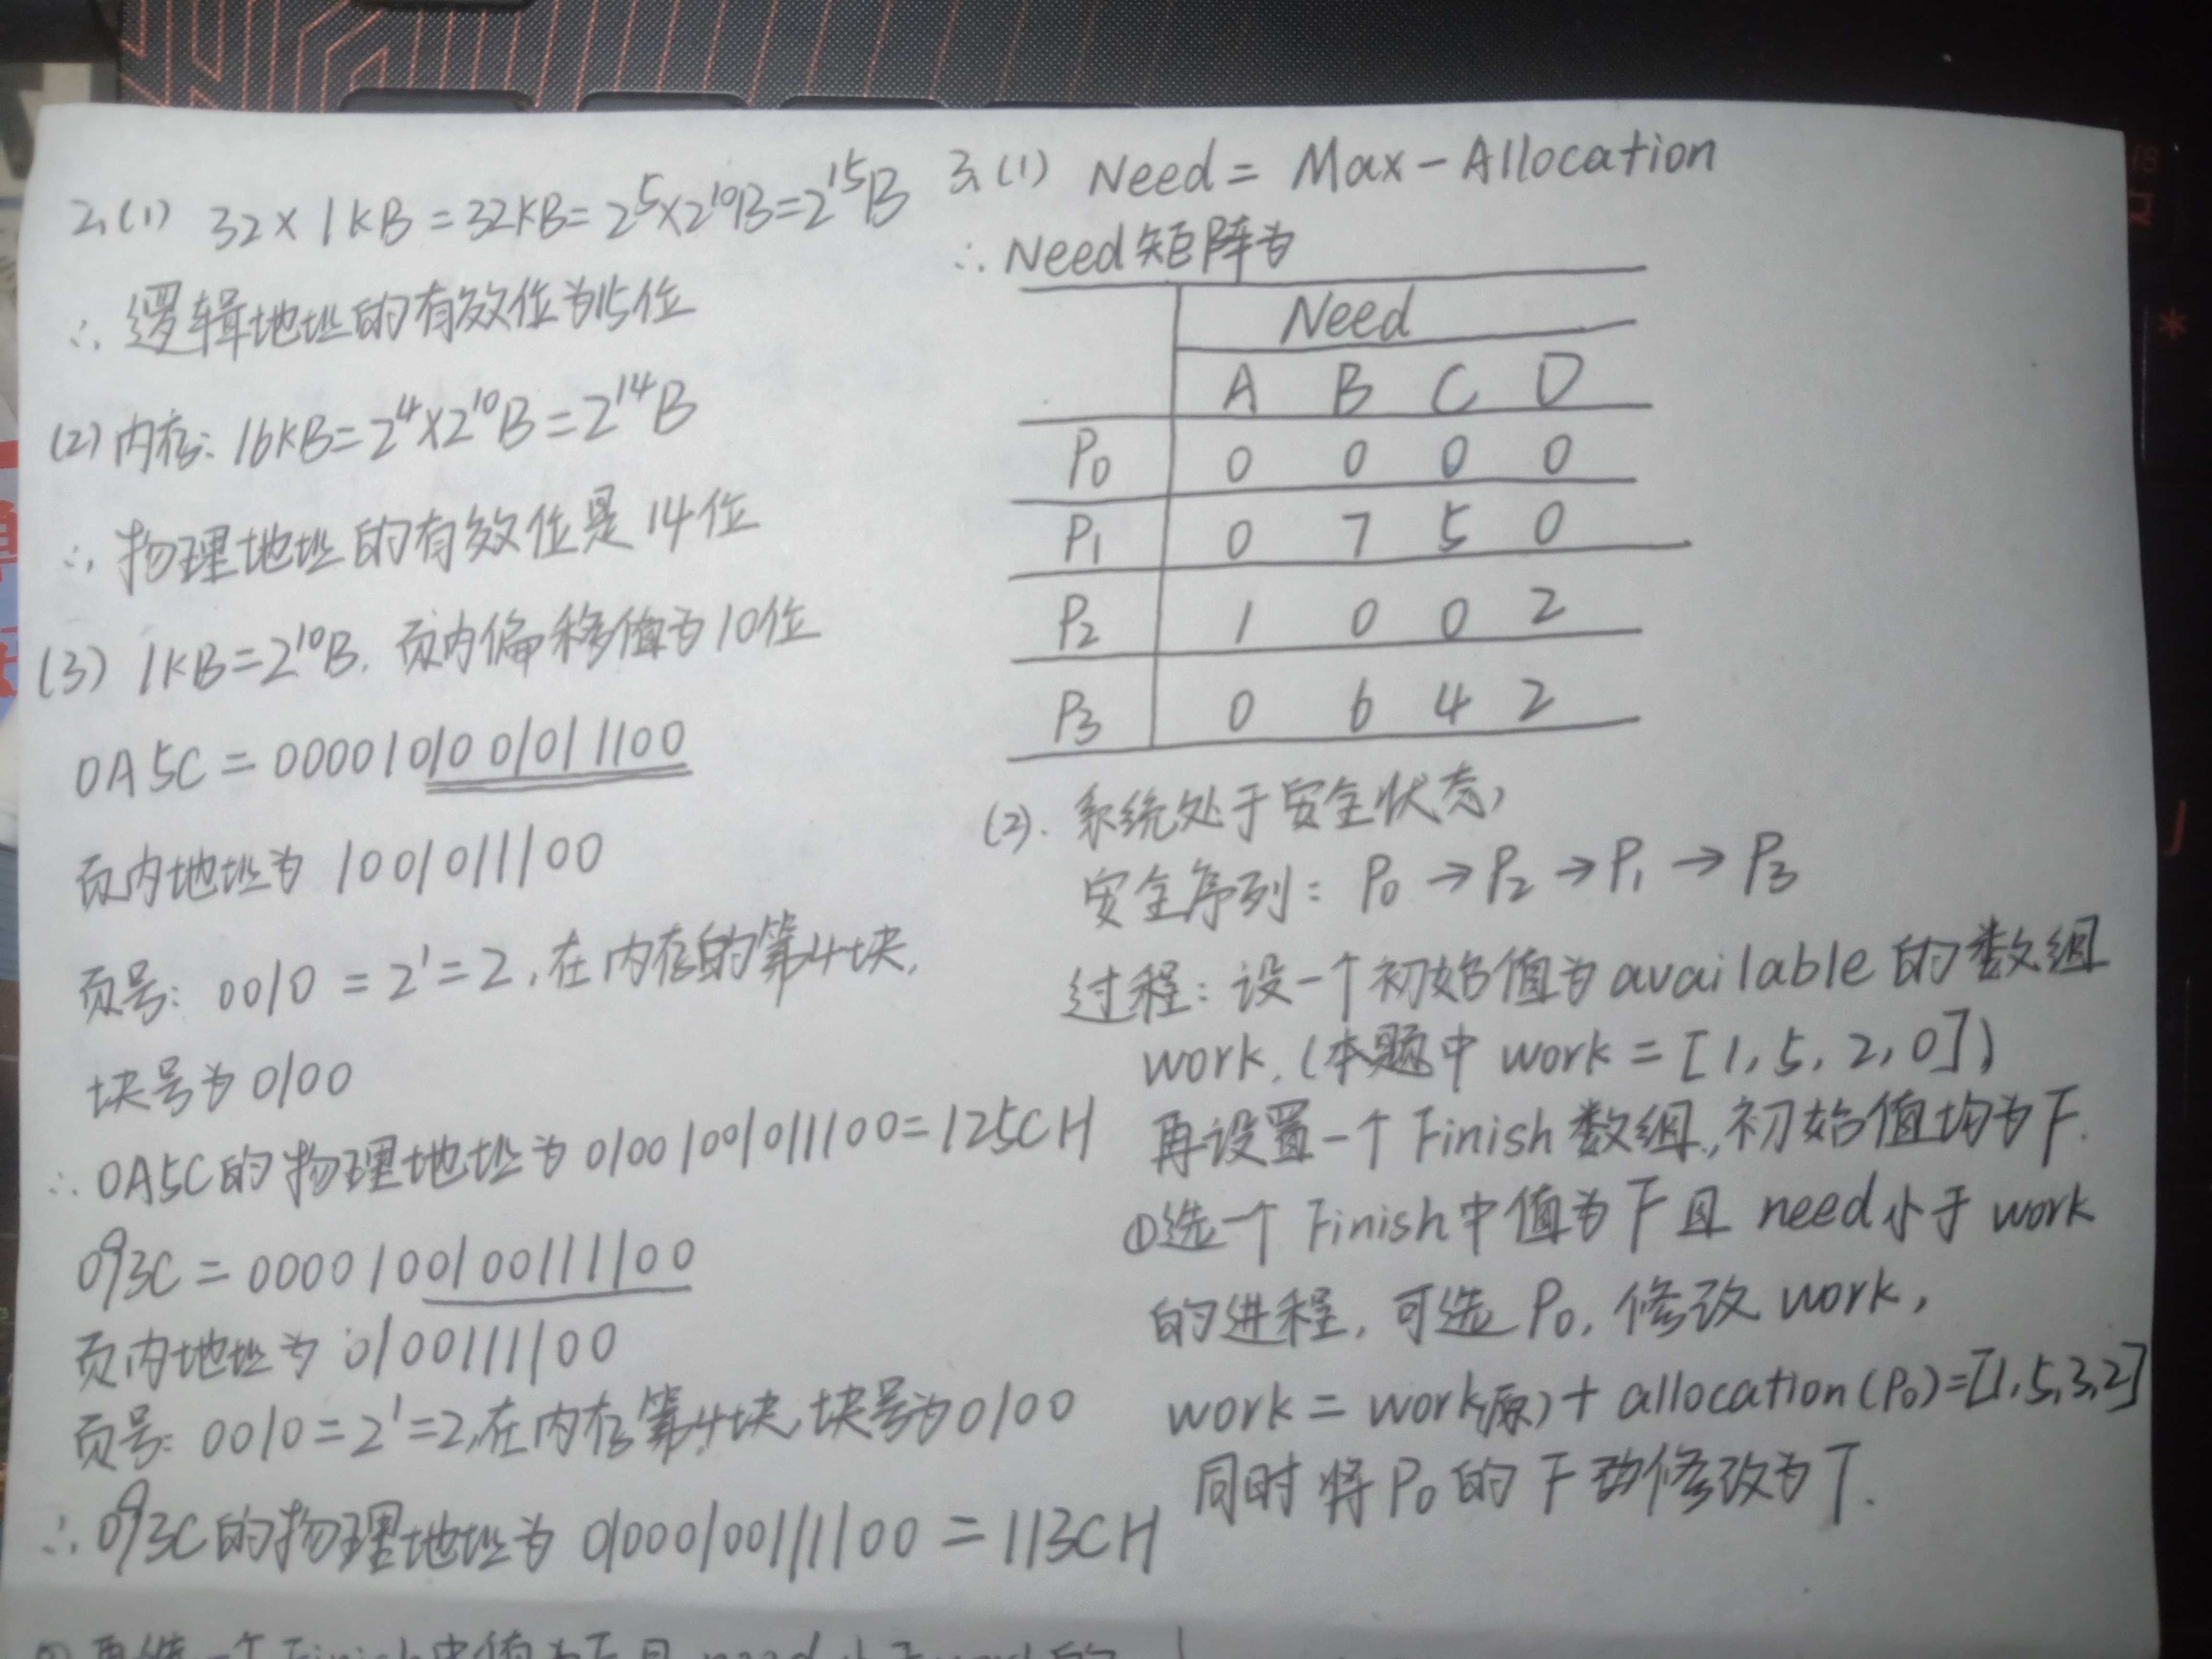 2.(1) 32×1KB=32KB=2⁵×2¹⁰B=2¹⁵B
∴逻辑地址的有效位为15位
(2)内存:16KB=2⁴×2¹⁰B=2¹⁴B
∴物理地址的有效位是14位
(3) 1KB=2¹⁰B.页内偏移值为10位
0A5C=0000101001011100
页内地址为1001011100
页号:0010=2¹=2,在内存的第4块,
块号为0100
∴0A5C的物理地址为01001001011100=125CH
093C=0000100100111100
页内地址为0100111100
页号:0010=2¹=2,在内存第4块,块号为0100
∴093C的物理地址为01000100111100=113CH
3.(1) Need=Max-Allocation
∴Need矩阵为
Need
A B C D
P₀ 0 0 0 0
P₁ 0 7 5 0
P₂ 1 0 0 2
P₃ 0 6 4 2
(2).系统处于安全状态,
安全序列:P₀→P₂→P₁→P₃
过程:设一个初始值为available的数组
work,(本题中work=[1,5,2,0])
再设置一个Finish数组,初始值均为F.
①选一个Finish中值为F且need小于work
的进程,可选P₀,修改work,
work=work(原)+allocation(P₀)=[1,5,3,2]
同时将P₀的F修改为T.
一个Finish中值为F且need小于work的